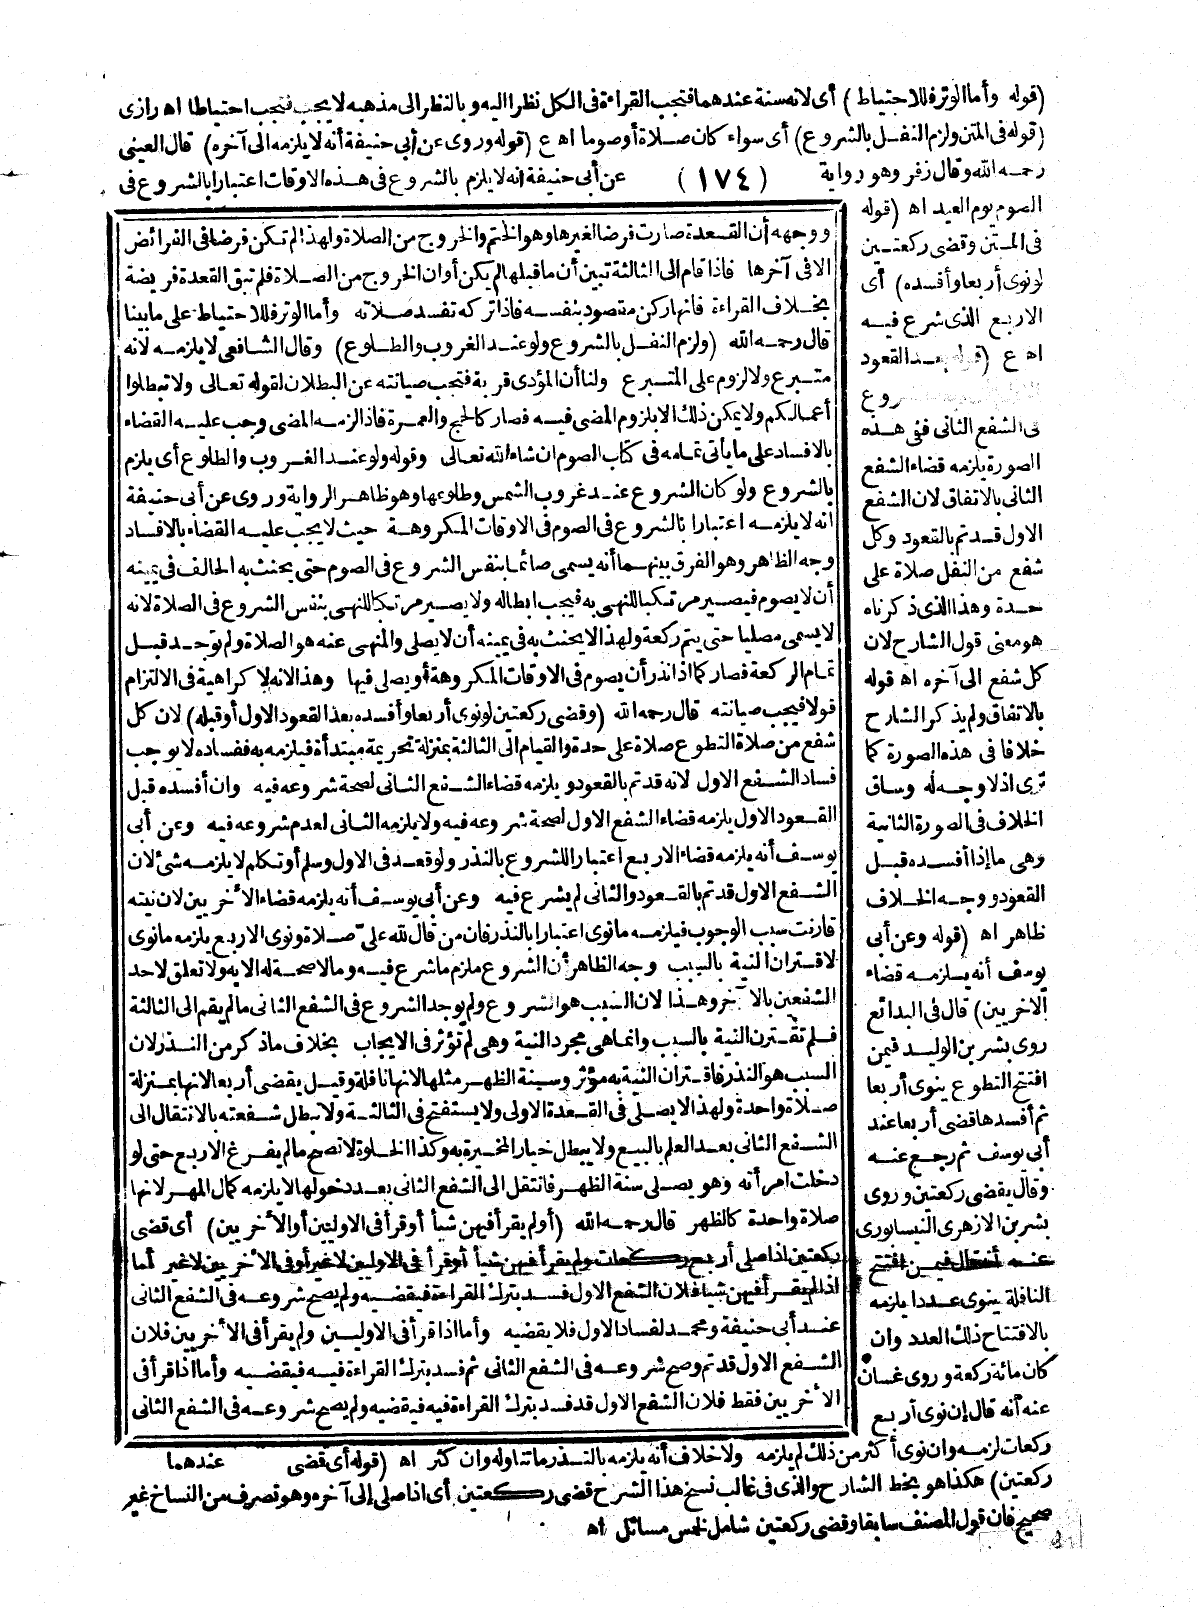 (قوله وأما الوتر فللاحتياط) أى لانه سنة عندهما فتجب القراءة فى الكل نظرا اليه وبالنظر الى مذهبه لا يجب فتجب احتياطا اه رازى
(قوله فى المتن ولزم النفل بالشروع) أى سواء كان صلاة أو صوما اه ع (قوله وروى عن أبى حنيفة أنه لا يلزمه الى آخره) قال العينى
رحمه الله وقال زفر وهو رواية (١٧٤) عن أبى حنيفة انه لا يلزم بالشروع فى هذه الاوقات اعتبارا بالشروع فى
الصوم يوم العيد اه (قوله
فى المتن وقضى ركعتين
لو نوى أربعا وأفسده) أى
الاربع الذى شرع فيه
اه ع بعد القعود
روع
فى الشفع الثانى ففى هذه
الصورة يلزمه قضاء الشفع
الثانى بالاتفاق لان الشفع
الاول قد تم بالقعود وكل
شفع من النفل صلاة على
حدة وهذا الذى ذكرناه
هو معنى قول الشارح لان
كل شفع الى آخره اه قوله
بالاتفاق ولم يذكر الشارح
خلافا فى هذه الصورة كما
ترى اذ لا وجه له وساق
الخلاف فى الصورة الثانية
وهى ما إذا أفسده قبل
القعود ووجه الخلاف
ظاهر اه (قوله وعن أبى
يوسف أنه يلزمه قضاء
الاخريين) قال فى البدائع
روى بشر بن الوليد فيمن
افتتح التطوع ينوى أربعا
ثم أفسدها قضى أربعا عند
أبى يوسف ثم رجع عنه
وقال يقضى ركعتين وروى
بشر بن الازهرى النيسابورى
عنه أنه قال فيمن افتتح
النافلة ينوى عددا يلزمه
بالافتتاح ذلك العدد وان
كان مائة ركعة وروى غسان
عنه أنه قال إن نوى أربع
ووجهه أن القعدة صارت فرضا لغيرها وهو الختم والخروج من الصلاة ولهذا لم تكن فرضا فى الفرائض
الا فى آخرها فاذا قام الى الثالثة تبين أن ما قبلها لم يكن أوان الخروج من الصلاة فلم تبق القعدة فريضة
بخلاف القراءة فانها ركن مقصود بنفسه فاذا تركه تفسد صلاته وأما الوتر فللاحتياط على ما بينا
قال رحمه الله (ولزم النفل بالشروع ولو عند الغروب والطلوع) وقال الشافعى لا يلزمه لانه
متبرع ولا لزوم على المتبرع ولنا أن المؤدى قربة فتجب صيانته عن البطلان لقوله تعالى ولا تبطلوا
أعمالكم ولا يمكن ذلك الا بلزوم المضى فيه فصار كالحج والعمرة فاذا لزمه المضى وجب عليه القضاء
بالافساد على ما يأتى تمامه فى كتاب الصوم ان شاء الله تعالى وقوله ولو عند الغروب والطلوع أى يلزم
بالشروع ولو كان الشروع عند غروب الشمس وطلوعها وهو ظاهر الرواية وروى عن أبى حنيفة
انه لا يلزمه اعتبارا بالشروع فى الصوم فى الاوقات المكروهة حيث لا يجب عليه القضاء بالافساد
وجه الظاهر وهو الفرق بينهما أنه يسمى صائما بنفس الشروع فى الصوم حتى يحنث به الحالف فى يمينه
أن لا يصوم فيصير مرتكبا للنهى به فيجب ابطاله ولا يصير مرتكبا للنهى بنفس الشروع فى الصلاة لانه
لا يسمى مصليا حتى يتم ركعة ولهذا لا يحنث به فى يمينه أن لا يصلى والمنهى عنه هو الصلاة ولم توجد قبل
تمام الركعة فصار كما اذا نذر أن يصوم فى الاوقات المكروهة أو يصلى فيها وهذا لانه لا كراهية فى الالتزام
قولا فيجب صيانته قال رحمه الله (وقضى ركعتين لو نوى أربعا وأفسده بعد القعود الاول أو قبله) لان كل
شفع من صلاة التطوع صلاة على حدة والقيام الى الثالثة بمنزلة تحريمة مبتدأة فيلزمه به ففساده لا يوجب
فساد الشفع الاول لانه قد تم بالقعود ويلزمه قضاء الشفع الثانى لصحة شروعه فيه وان أفسده قبل
القعود الاول يلزمه قضاء الشفع الاول لصحة شروعه فيه ولا يلزمه الثانى لعدم شروعه فيه وعن أبى
يوسف أنه يلزمه قضاء الاربع اعتبارا للشروع بالنذر ولو قعد فى الاول وسلم أو تكلم لا يلزمه شئ لان
الشفع الاول قد تم بالقعود والثانى لم يشرع فيه وعن أبى يوسف أنه يلزمه قضاء الأخريين لان نيته
قارنت سبب الوجوب فيلزمه ما نوى اعتبارا بالنذر فان من قال لله علىّ صلاة ونوى الاربع يلزمه ما نوى
لاقتران النية بالسبب وجه الظاهر أن الشروع ملزم ما شرع فيه وما لا صحة له الا به ولا تعلق لاحد
الشفعين بالآخر وهذا لان السبب هو الشروع ولم يوجد الشروع فى الشفع الثانى ما لم يقم الى الثالثة
فلم تقترن النية بالسبب وانما هى مجرد النية وهى لم تؤثر فى الايجاب بخلاف ما ذكر من النذر لان
السبب هو النذر فاقتران النية به مؤثر وسنة الظهر مثلها لانها نافلة وقيل يقضى أربعا لانها بمنزلة
صلاة واحدة ولهذا لا يصلى فى القعدة الاولى ولا يستفتح فى الثالثة ولا تبطل شفعته بالانتقال الى
الشفع الثانى بعد العلم بالبيع ولا يبطل خيار المخيرة به وكذا الخلوة لا تصح ما لم يفرغ الاربع حتى لو
دخلت امرأته وهو يصلى سنة الظهر فانتقل الى الشفع الثانى بعد دخولها لا يلزمه كمال المهر لانها
صلاة واحدة كالظهر قال رحمه الله (أو لم يقرأ فيهن شيأ أو قرأ فى الاوليين أو الأخريين) أى قضى
ركعتين اذا صلى أربع ركعات ولم يقرأ فيهن شيأ أو قرأ فى الاوليين لا غير أو فى الأخريين لا غير أما
اذا لم يقرأ فيهن شيأ فلان الشفع الاول فسد بترك القراءة فيقضيه ولم يصح شروعه فى الشفع الثانى
عند أبى حنيفة ومحمد لفساد الاول فلا يقضيه وأما اذا قرأ فى الاوليين ولم يقرأ فى الأخريين فلان
الشفع الاول قد تم وصح شروعه فى الشفع الثانى ثم فسد بترك القراءة فيه فيقضيه وأما اذا قرأ فى
الأخريين فقط فلان الشفع الاول قد فسد بترك القراءة فيه فيقضيه ولم يصح شروعه فى الشفع الثانى
عندهما
ركعات لزمه وان نوى أكثر من ذلك لم يلزمه ولا خلاف أنه يلزمه بالنذر ما تناوله وان كثر اه (قوله أى قضى
ركعتين) هكذا هو بخط الشارح والذى فى غالب نسخ هذا الشرح قضى ركعتين أى اذا صلى إلى آخره وهو تصرف من النساخ غير
صحيح فان قول المصنف سابقا وقضى ركعتين شامل لخمس مسائل اه